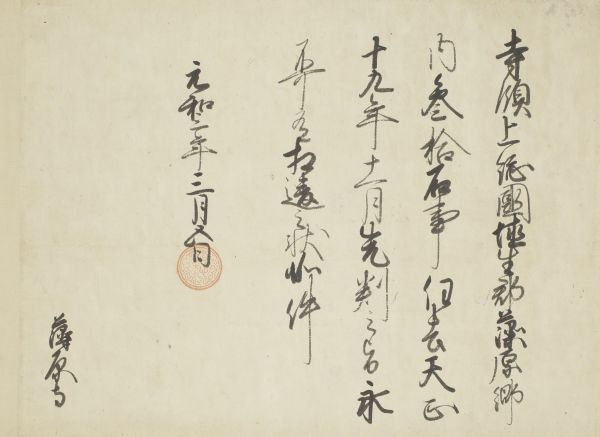 寺領上総國埴生郡藻原郷
内叁拾石事任去天正
十九年十一月先判之旨永
不可有相違之状如件
元和二年三月
藻原寺